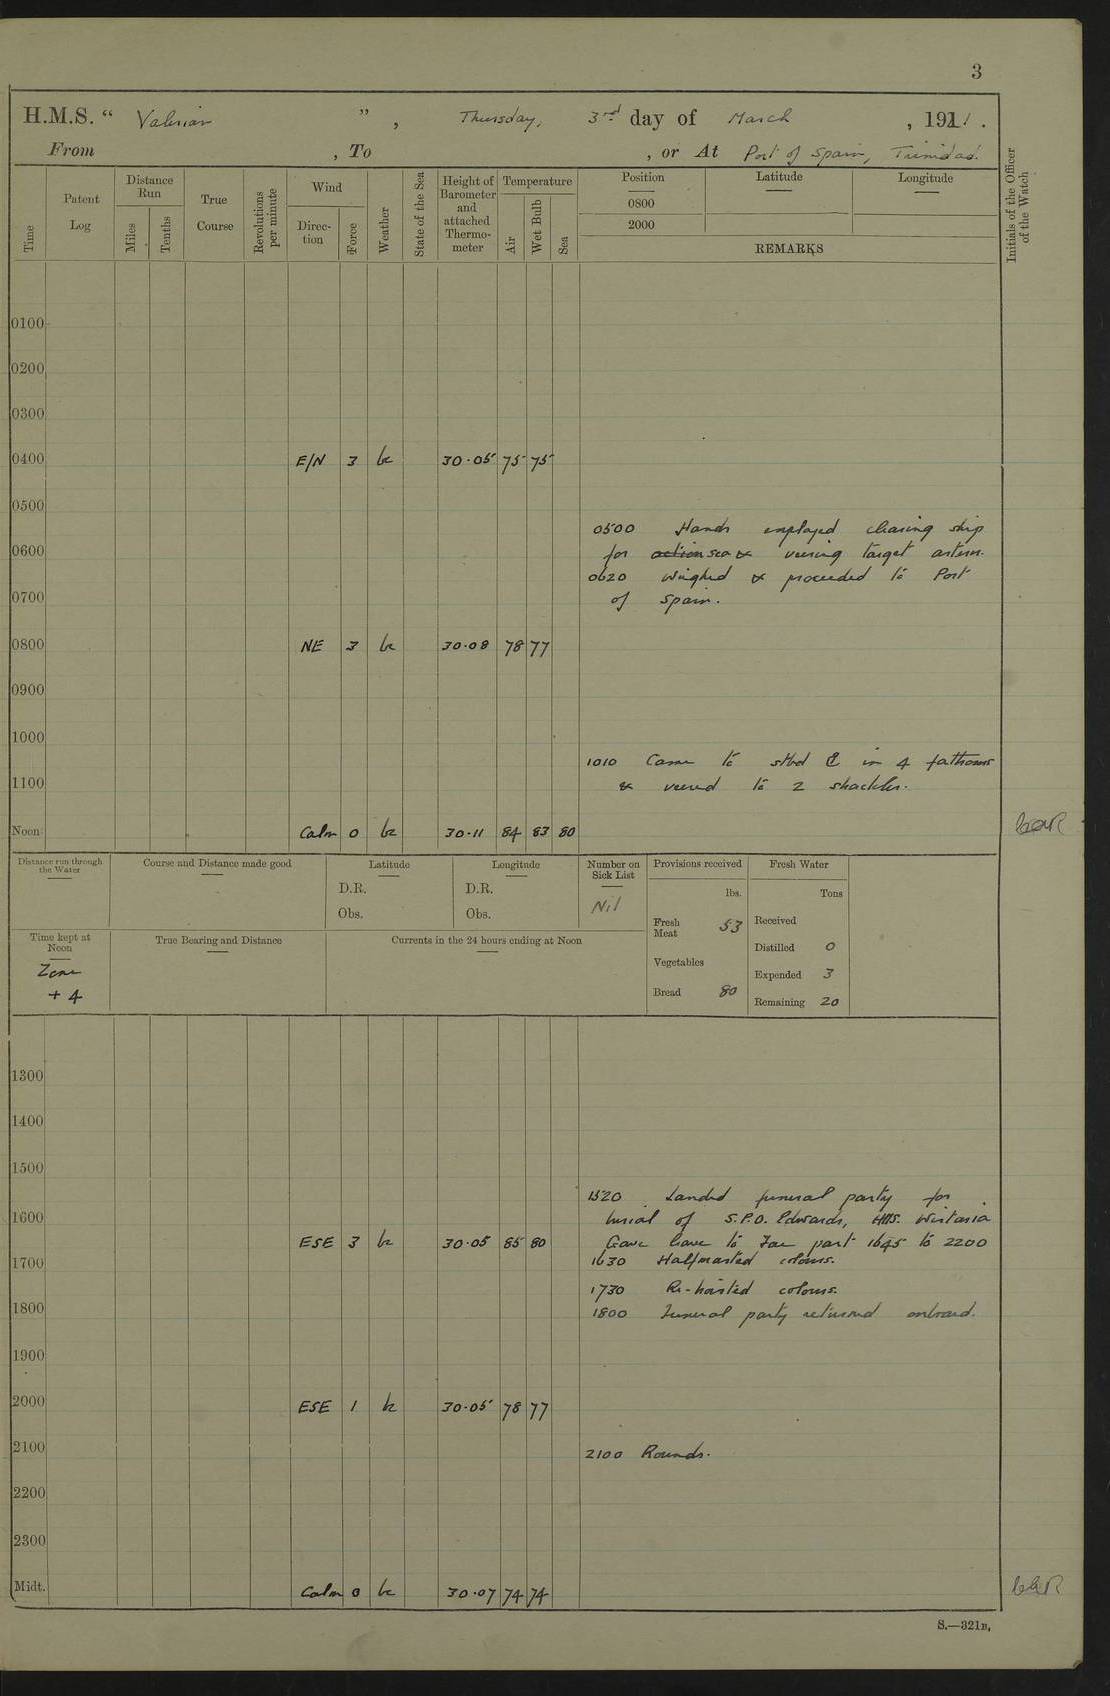 3
H.M.S. “ Valerian ” , Thursday, 3rd day of March , 1921 .
From , To , or At Port of Spain, Trinidad.
Time
Patent Log
Distance Run
Miles
Tenths
True Course
Revolutions per minute
Wind
Direction
Force
Weather
State of the Sea
Height of Barometer and attached Thermometer
Temperature
Air
Wet Bulb
Sea
Position
0800
2000
Latitude
Longitude
REMARKS
Initials of the Officer of the Watch
0100
0200
0300
0400 E/N 3 bc 30·05 75 75
0500
0500 Hands employed clearing ship
0600 for action sea & veering target astern.
0620 Weighed & proceeded to Port
0700 of Spain.
0800 NE 3 bc 30·08 78 77
0900
1000
1010 Came to stbd in 4 fathoms
1100 & veered to 2 shackles.
Noon Calm 0 bc 30·11 84 83 80
Distance run through the Water
Course and Distance made good
Latitude
D.R.
Obs.
Longitude
D.R.
Obs.
Number on Sick List
Nil
Provisions received
lbs.
Fresh Meat 53
Vegetables
Bread 80
Fresh Water
Tons
Received
Distilled 0
Expended 3
Remaining 20
Time kept at Noon
Zone
+ 4
True Bearing and Distance
Currents in the 24 hours ending at Noon
1300
1400
1500
1520 Landed funeral party for
1600 burial of S.P.O. Edwards, HMS. Wistaria
ESE 3 bc 30·05 85 80 Gave leave to part 1645 to 2200
1700 1630 Halfmasted colours.
1730 Re-hoisted colours.
1800 1800 Funeral party returned onboard.
1900
2000 ESE 1 bc 30·05 78 77
2100 2100 Rounds.
2200
2300
Midt. Calm 0 bc 30·07 74 74
S.—321B.